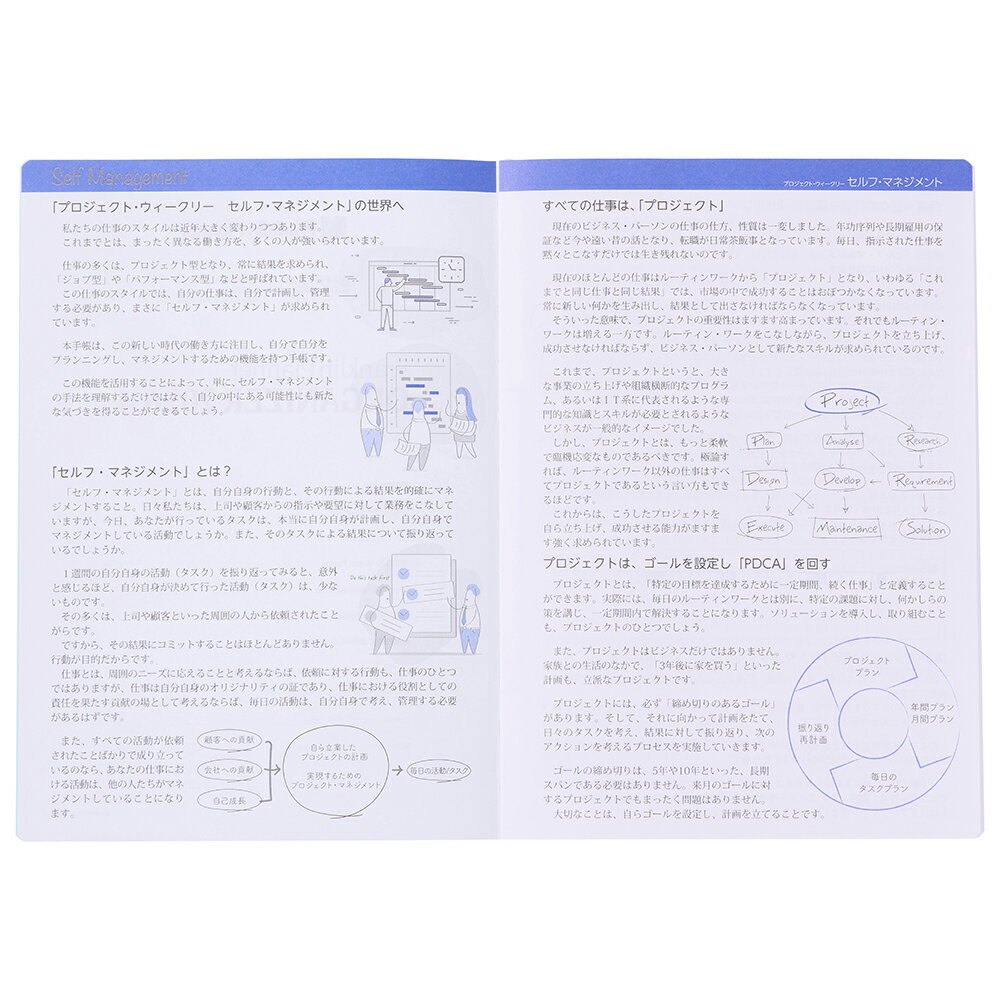 Self Management
「プロジェクト・ウィークリー　セルフ・マネジメント」の世界へ
私たちの仕事のスタイルは近年大きく変わりつつあります。
これまでとは、まったく異なる働き方を、多くの人が強いられています。
仕事の多くは、プロジェクト型となり、常に結果を求められ、
「ジョブ型」や「パフォーマンス型」などと呼ばれています。
この仕事のスタイルでは、自分の仕事は、自分で計画し、管理
する必要があり、まさに「セルフ・マネジメント」が求められ
ています。
本手帳は、この新しい時代の働き方に注目し、自分で自分を
プランニングし、マネジメントするための機能を持つ手帳です。
この機能を活用することによって、単に、セルフ・マネジメント
の手法を理解するだけではなく、自分の中にある可能性にも新た
な気づきを得ることができるでしょう。
「セルフ・マネジメント」とは？
「セルフ・マネジメント」とは、自分自身の行動と、その行動による結果を的確にマネ
ジメントすること。日々私たちは、上司や顧客からの指示や要望に対して業務をこなして
いますが、今日、あなたが行っているタスクは、本当に自分自身が計画し、自分自身で
マネジメントしている活動でしょうか。また、そのタスクによる結果について振り返って
いるでしょうか。
１週間の自分自身の活動（タスク）を振り返ってみると、意外
と感じるほど、自分自身が決めて行った活動（タスク）は、少な
いものです。
その多くは、上司や顧客といった周囲の人から依頼されたこと
がらです。
ですから、その結果にコミットすることはほとんどありません。
行動が目的だからです。
Do this task first
仕事とは、周囲のニーズに応えることと考えるならば、依頼に対する行動も、仕事のひとつ
ではありますが、仕事は自分自身のオリジナリティの証であり、仕事における役割としての
責任を果たす貢献の場として考えるならば、毎日の活動は、自分自身で考え、管理する必要
があるはずです。
また、すべての活動が依頼
されたことばかりで成り立って
いるのなら、あなたの仕事にお
ける活動は、他の人たちがマネ
ジメントしていることになり
ます。
顧客への貢献
会社への貢献
自己成長
自ら立案した
プロジェクトの計画
実現するための
プロジェクト・マネジメント
毎日の活動/タスク
プロジェクト・ウィークリー セルフ・マネジメント
すべての仕事は、「プロジェクト」
現在のビジネス・パーソンの仕事の仕方、性質は一変しました。年功序列や長期雇用の保
証など今や遠い昔の話となり、転職が日常茶飯事となっています。毎日、指示された仕事を
黙々とこなすだけでは生き残れないのです。
現在のほとんどの仕事はルーティンワークから「プロジェクト」となり、いわゆる「これ
までと同じ仕事と同じ結果」では、市場の中で成功することはおぼつかなくなっています。
常に新しい何かを生み出し、結果として出さなければならなくなっています。
そういった意味で、プロジェクトの重要性はますます高まっています。それでもルーティン・
ワークは増える一方です。ルーティン・ワークをこなしながら、プロジェクトを立ち上げ、
成功させなければならず、ビジネス・パーソンとして新たなスキルが求められているのです。
これまで、プロジェクトというと、大き
な事業の立ち上げや組織横断的なプログラ
ム、あるいはＩＴ系に代表されるような専
門的な知識とスキルが必要とされるような
ビジネスが一般的なイメージでした。
しかし、プロジェクトとは、もっと柔軟
で臨機応変なものであるべきです。極論す
れば、ルーティンワーク以外の仕事はすべ
てプロジェクトであるという言い方もでき
るほどです。
これからは、こうしたプロジェクトを
自ら立ち上げ、成功させる能力がますま
す強く求められています。
Project
Plan
Analyse
Research
Design
Develop
Requirement
Execute
Maintenance
Solution
プロジェクトは、ゴールを設定し「PDCA」を回す
プロジェクトとは、「特定の目標を達成するために一定期間、続く仕事」と定義すること
ができます。実際には、毎日のルーティンワークとは別に、特定の課題に対し、何かしらの
策を講じ、一定期間内で解決することになります。ソリューションを導入し、取り組むこと
も、プロジェクトのひとつでしょう。
また、プロジェクトはビジネスだけではありません。
家族との生活のなかで、「3年後に家を買う」といった
計画も、立派なプロジェクトです。
プロジェクトには、必ず「締め切りのあるゴール」
があります。そして、それに向かって計画をたて、
日々のタスクを考え、結果に対して振り返り、次の
アクションを考えるプロセスを実施していきます。
ゴールの締め切りは、5年や10年といった、長期
スパンである必要はありません。来月のゴールに対
するプロジェクトでもまったく問題はありません。
大切なことは、自らゴールを設定し、計画を立てることです。
プロジェクト
プラン
年間プラン
月間プラン
毎日の
タスクプラン
振り返り
再計画